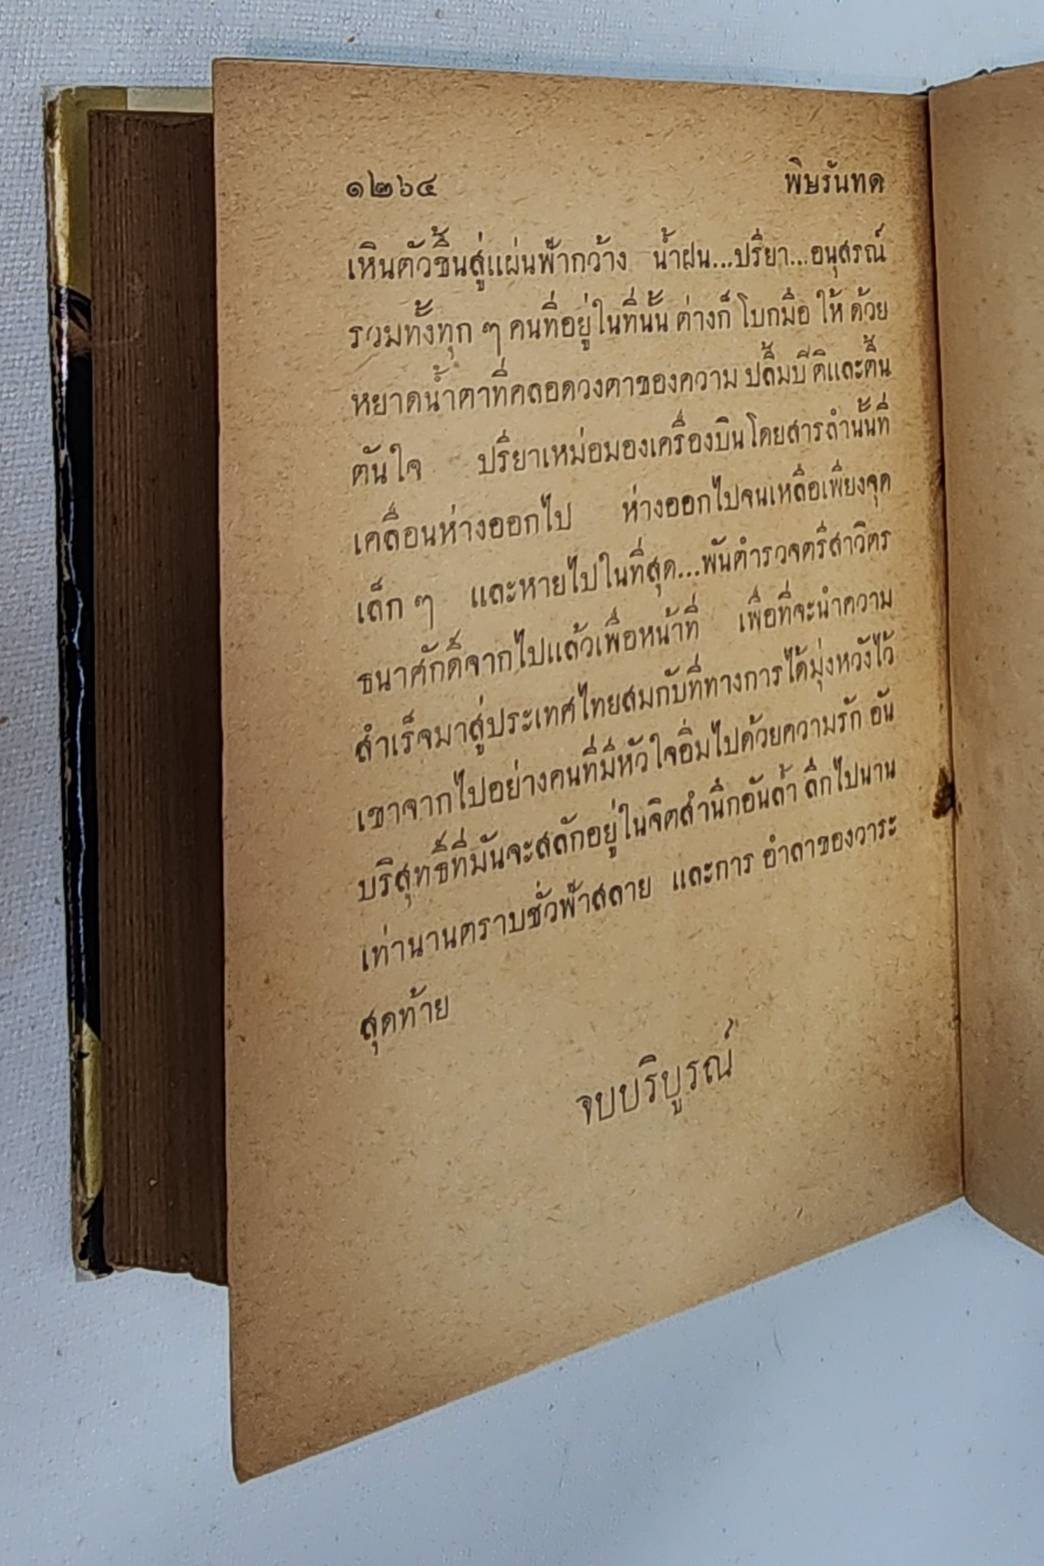 ๑๒๖๔ พิษรันทด
เหินตัวขึ้นสู่แผ่นฟ้ากว้าง น้ำฝน...ปรียา...อนุสรณ์
รวมทั้งทุก ๆ คนที่อยู่ในที่นั้น ต่างก็ โบกมือ ให้ ด้วย
หยาดน้ำตาที่คลอดวงตาของความ ปลื้มปีติและตื้น
ตันใจ ปรียาเหม่อมองเครื่องบินโดยสารลำนั้นที่
เคลื่อนห่างออกไป ห่างออกไปจนเหลือเพียงจุด
เล็ก ๆ และหายไปในที่สุด...พันตำรวจตรีสาวิตร
ธนาศักดิ์จากไปแล้วเพื่อหน้าที่ เพื่อที่จะนำความ
สำเร็จมาสู่ประเทศไทยสมกับที่ทางการได้มุ่งหวังไว้
เขาจากไปอย่างคนที่มีหัวใจอิ่มไปด้วยความรัก อัน
บริสุทธิ์ที่มันจะสลักอยู่ในจิตสำนึกอันล้ำ ลึกไปนาน
เท่านานตราบชั่วฟ้าสลาย และการ อำลาของวาระ
สุดท้าย
จบบริบูรณ์